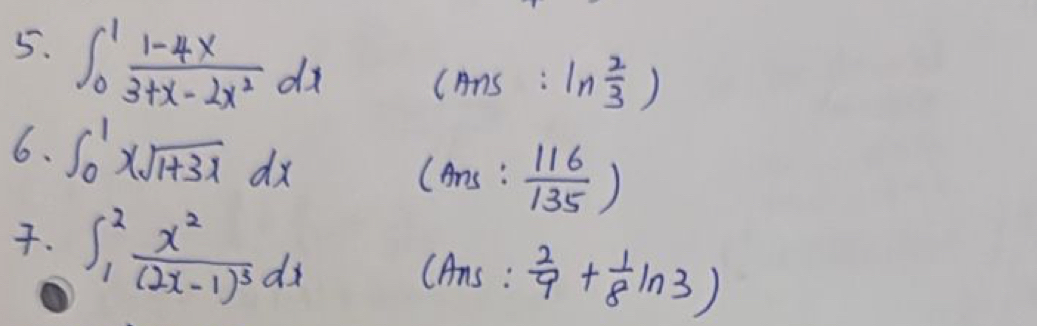 5. ∫₀¹ (1-4x)/(3+x-2x²) dx (Ans : ln 2/3)
6. ∫₀¹ x√(1+3x) dx (Ans : 116/135)
7. ∫₁² x²/(2x-1)³ dx (Ans : 2/9 + 1/8 ln3)